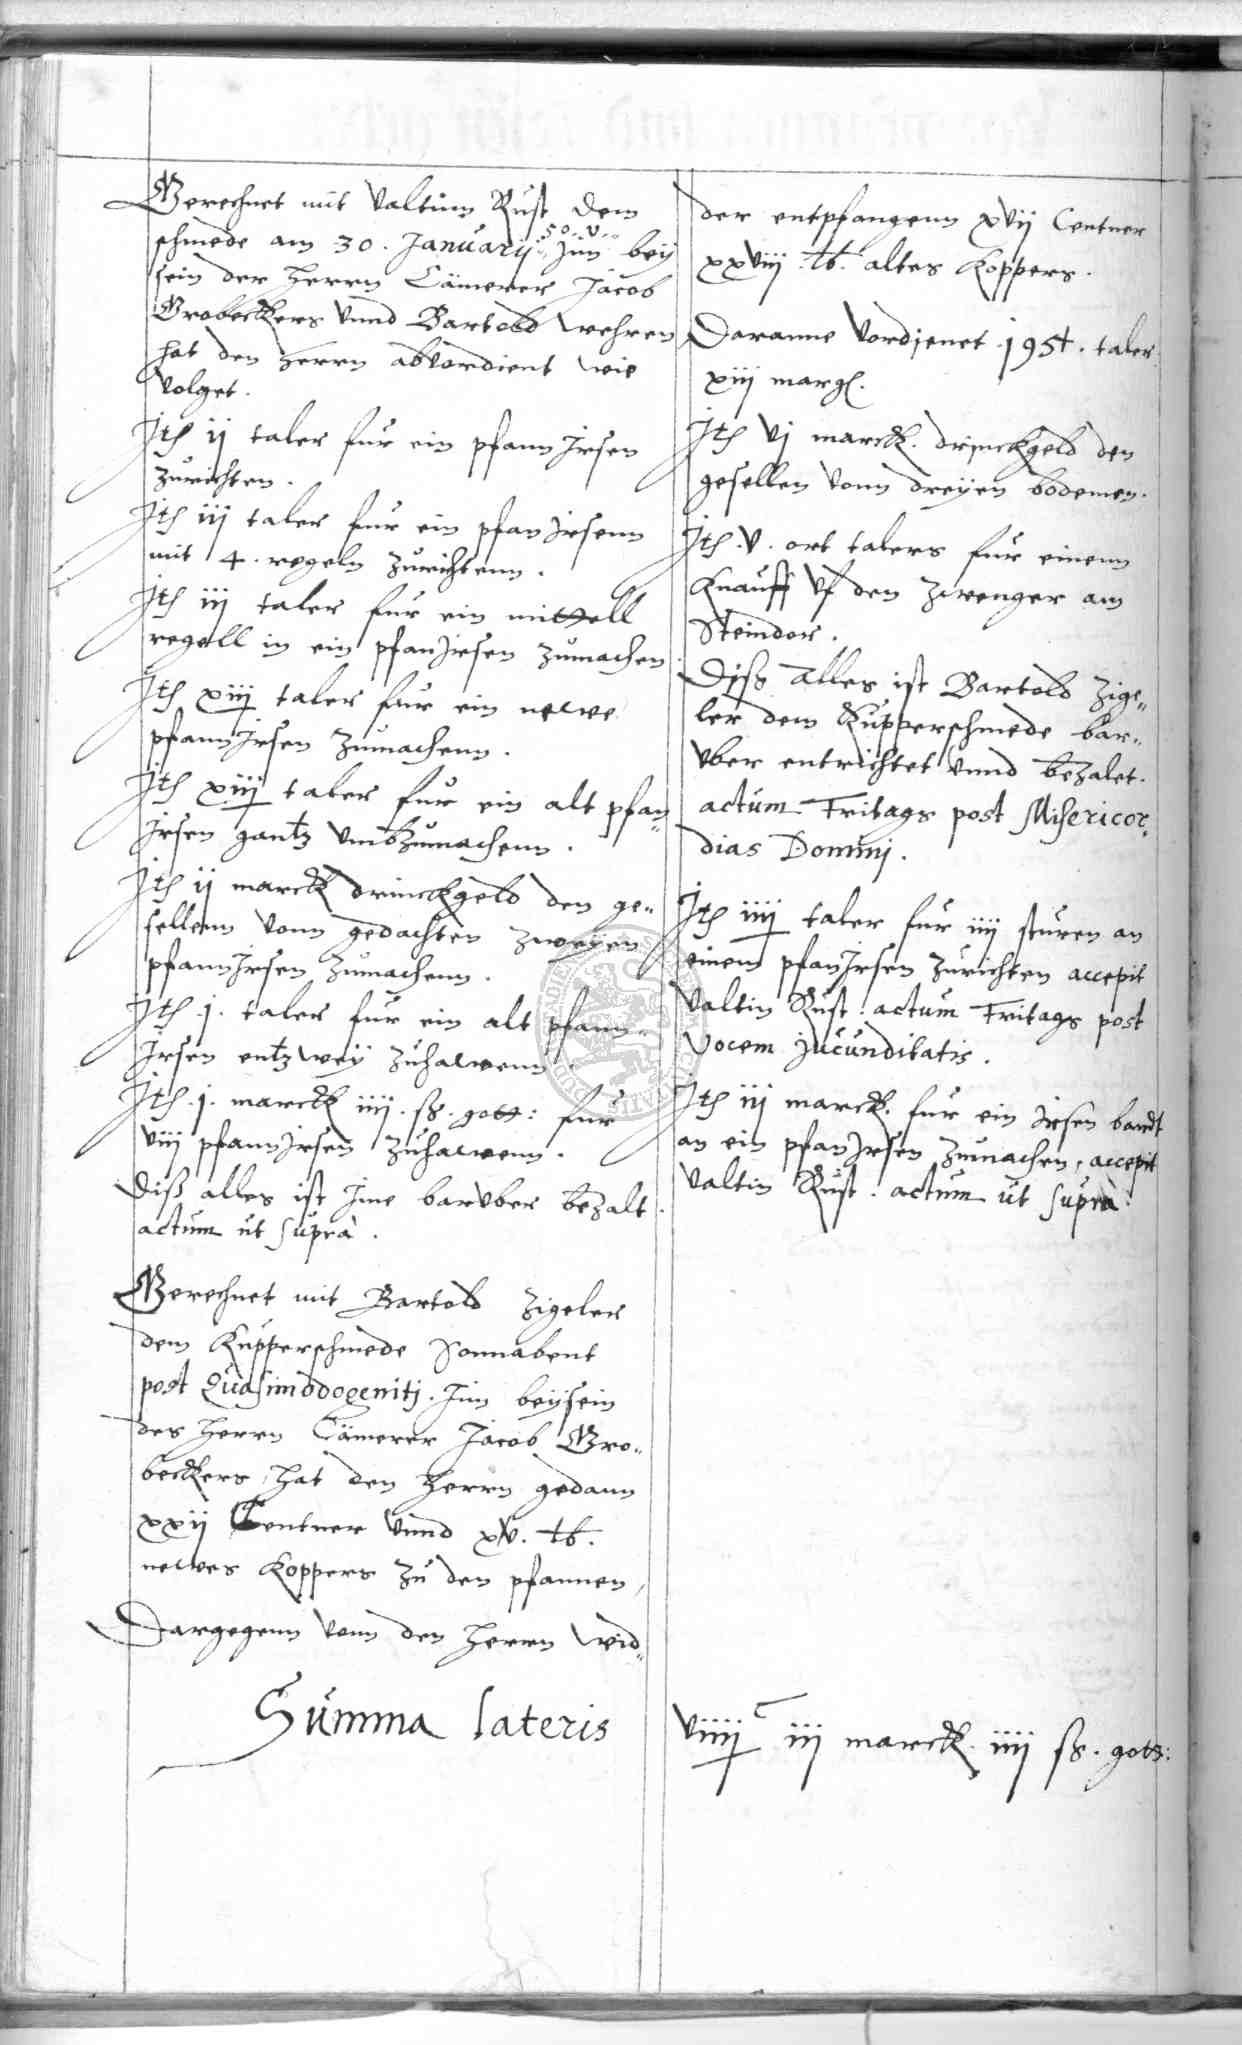 Gerechnet mit Valtinn Rust dem
schmede am 30. Januarij 50. Jnn bey
sein der Herrn Cämerer Jacob
Grobeckers vnnd Bartold Wehren
hat den Herrn abvordient wie
volget.
Jtem ij taler fur ein pfann Jrsen
zurichten.
Jtem iij taler fur ein pfan Jrsenn
mit 4. regeln zurichtenn.
Jtem iij taler fur ein mittell
regell in ein pfanJrsen zumachen
Jtem xiij taler fur ein newe
pfannJrsen zumachenn.
Jtem xiij taler fur ein alt pfan„
Jrsen gantz vmbzumachenn.
Jtem ij marck drinckgeld den ge„
sellenn vonn gedachten zweyen
pfannJrsen zumachenn.
Jtem .j. taler fur ein alt pfann„
Jrsen entzwey zuhawenn.
Jtem .j. marck iiij. ß. gott: fur
viij pfannJrsen zuhawenn.
Diß alles ist Jme barvber bezalt.
actum ut suprà.
Gerechnet mit Bartold Zigeler
dem Kupperschmede Sonnabent
post Quasimodogenitj. Jnn beysein
des Herrn Cämerer Jacob Gro„
beckers, hat den Herrn gedann
xxij Centner vnnd xv. lb.
newes Koppers zu den pfannen,
Dargegenn vonn den Herrn wid„
der entpfangenn xvij Centner
xxviij. lb. altes Koppers.
Daranne vordjenet .195½. taler
xiij marg.
Jtem vj marck. drjnckgeld den
gesellen vonn dreyen bodemen.
Jtem .v. ort talers fur einenn
Knauff vf den zwenger am
Steindor.
Diß alles ist Bartold Zige„
ler dem Kupperschmede bar„
vber entrichtet vnnd bezalet.
actum Fritags post Misericor„
dias Dominj.
Jtem iiij taler fur iiij sturen an
einem pfanJrsen zurichten accepit
Valtin Rust. actum Fritags post
Vocem jucunditatis.
Jtem iij marck. fur ein Jrsen bandt
an ein pfanJrsen zumachen, accepit
Valtin Rust. actum ut suprà.
Summa lateris
viiij c iij marck. iiij ß. gott: